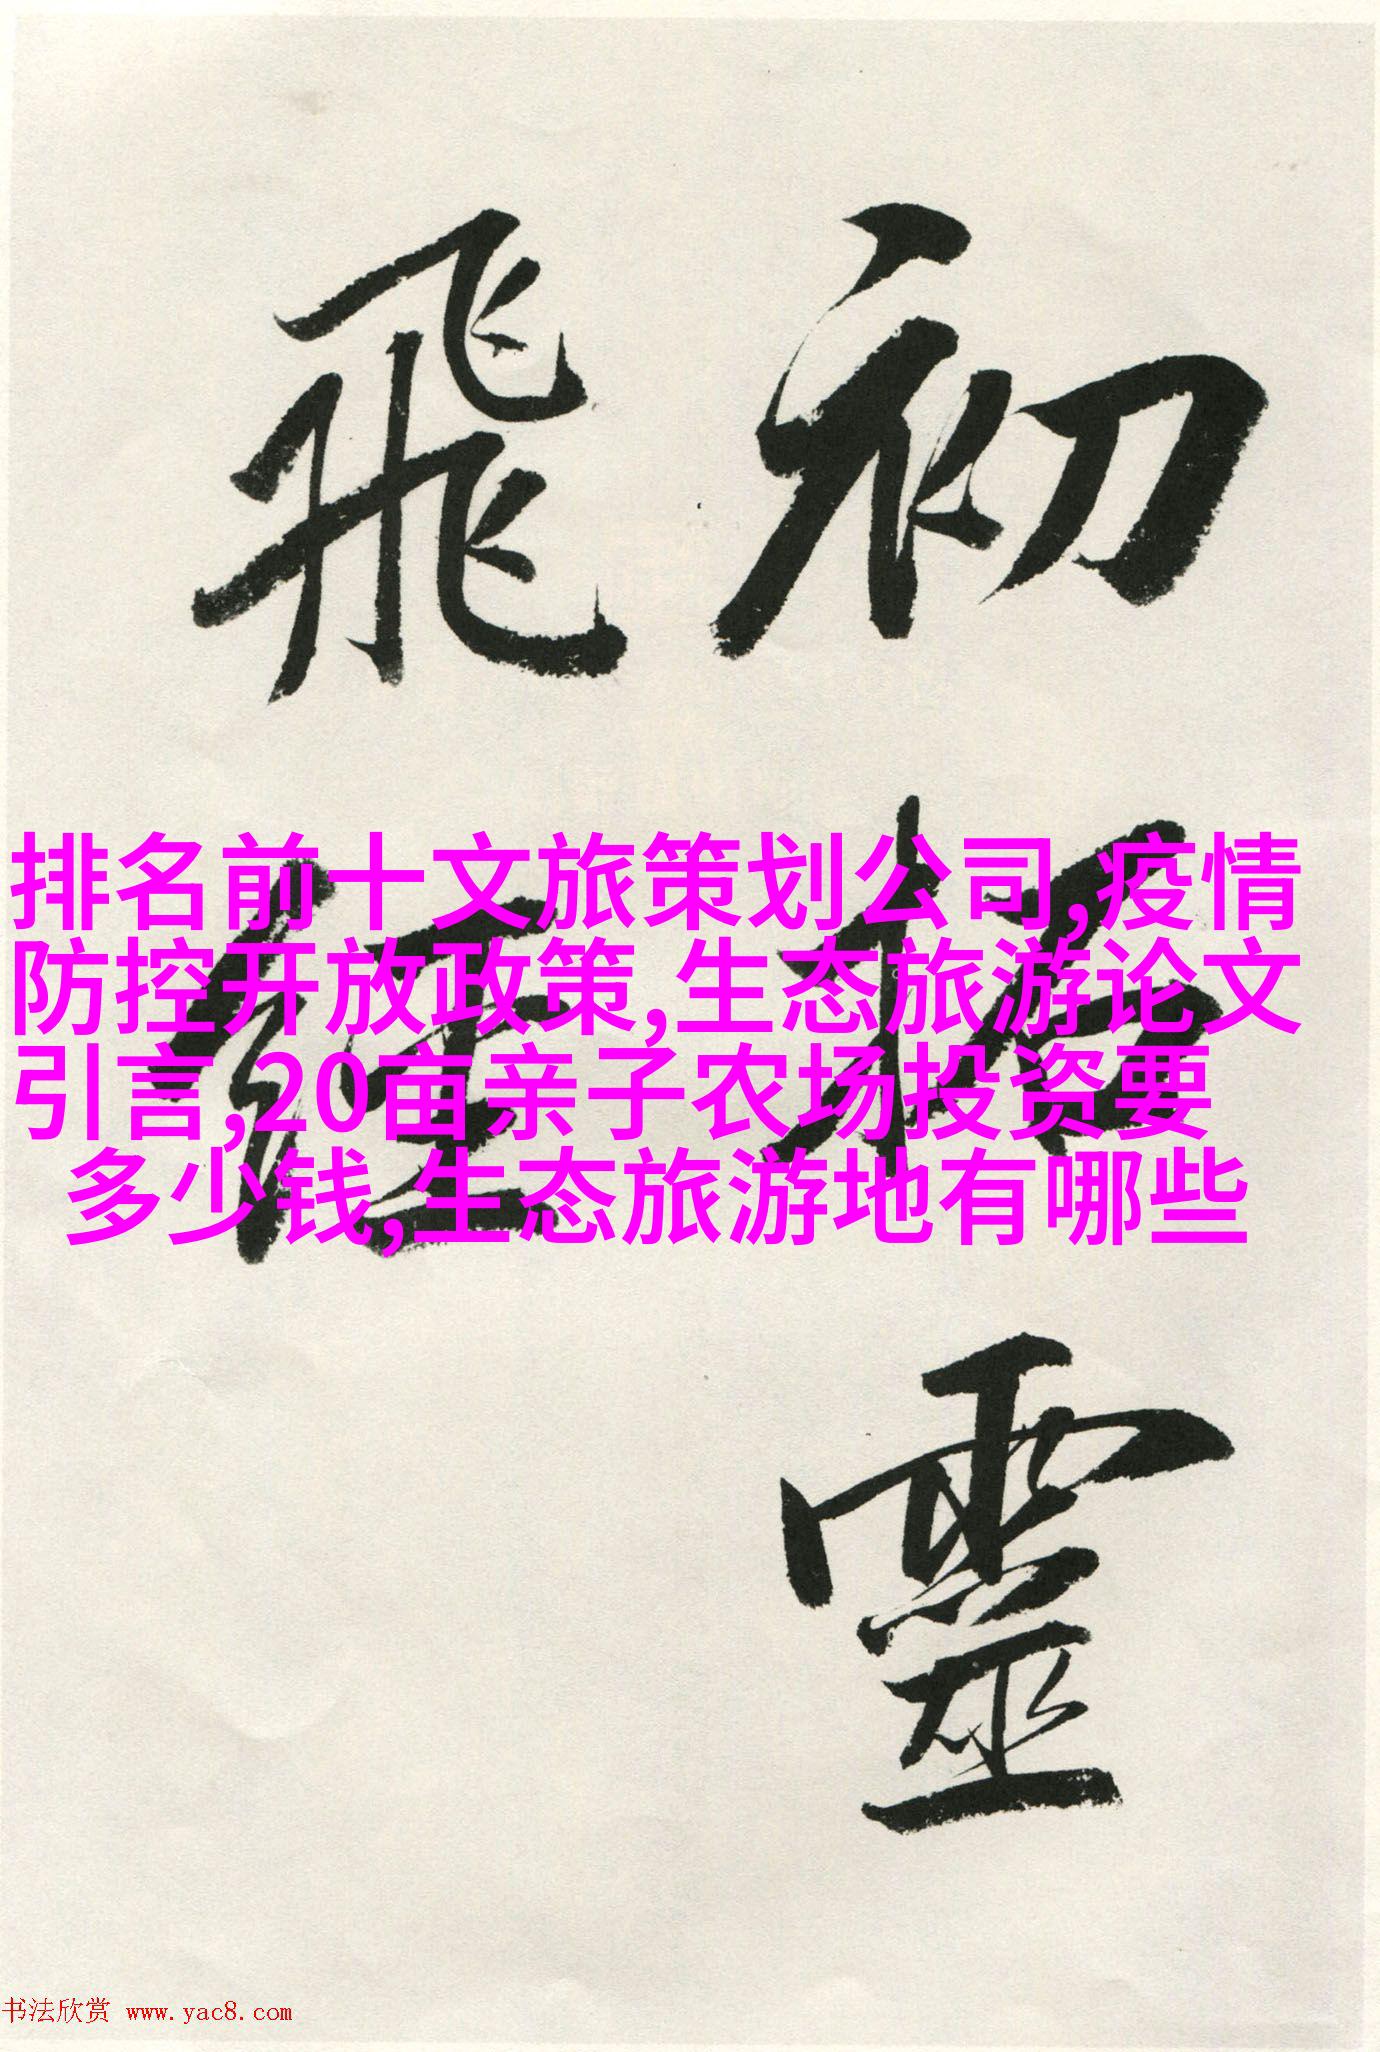 初拓靈
飛經
排名前十文旅策划公司,疫情
防控开放政策,生态旅游论文
引言,20亩亲子农场投资要
多少钱,生态旅游地有哪些
书法欣赏 www.yac8.com